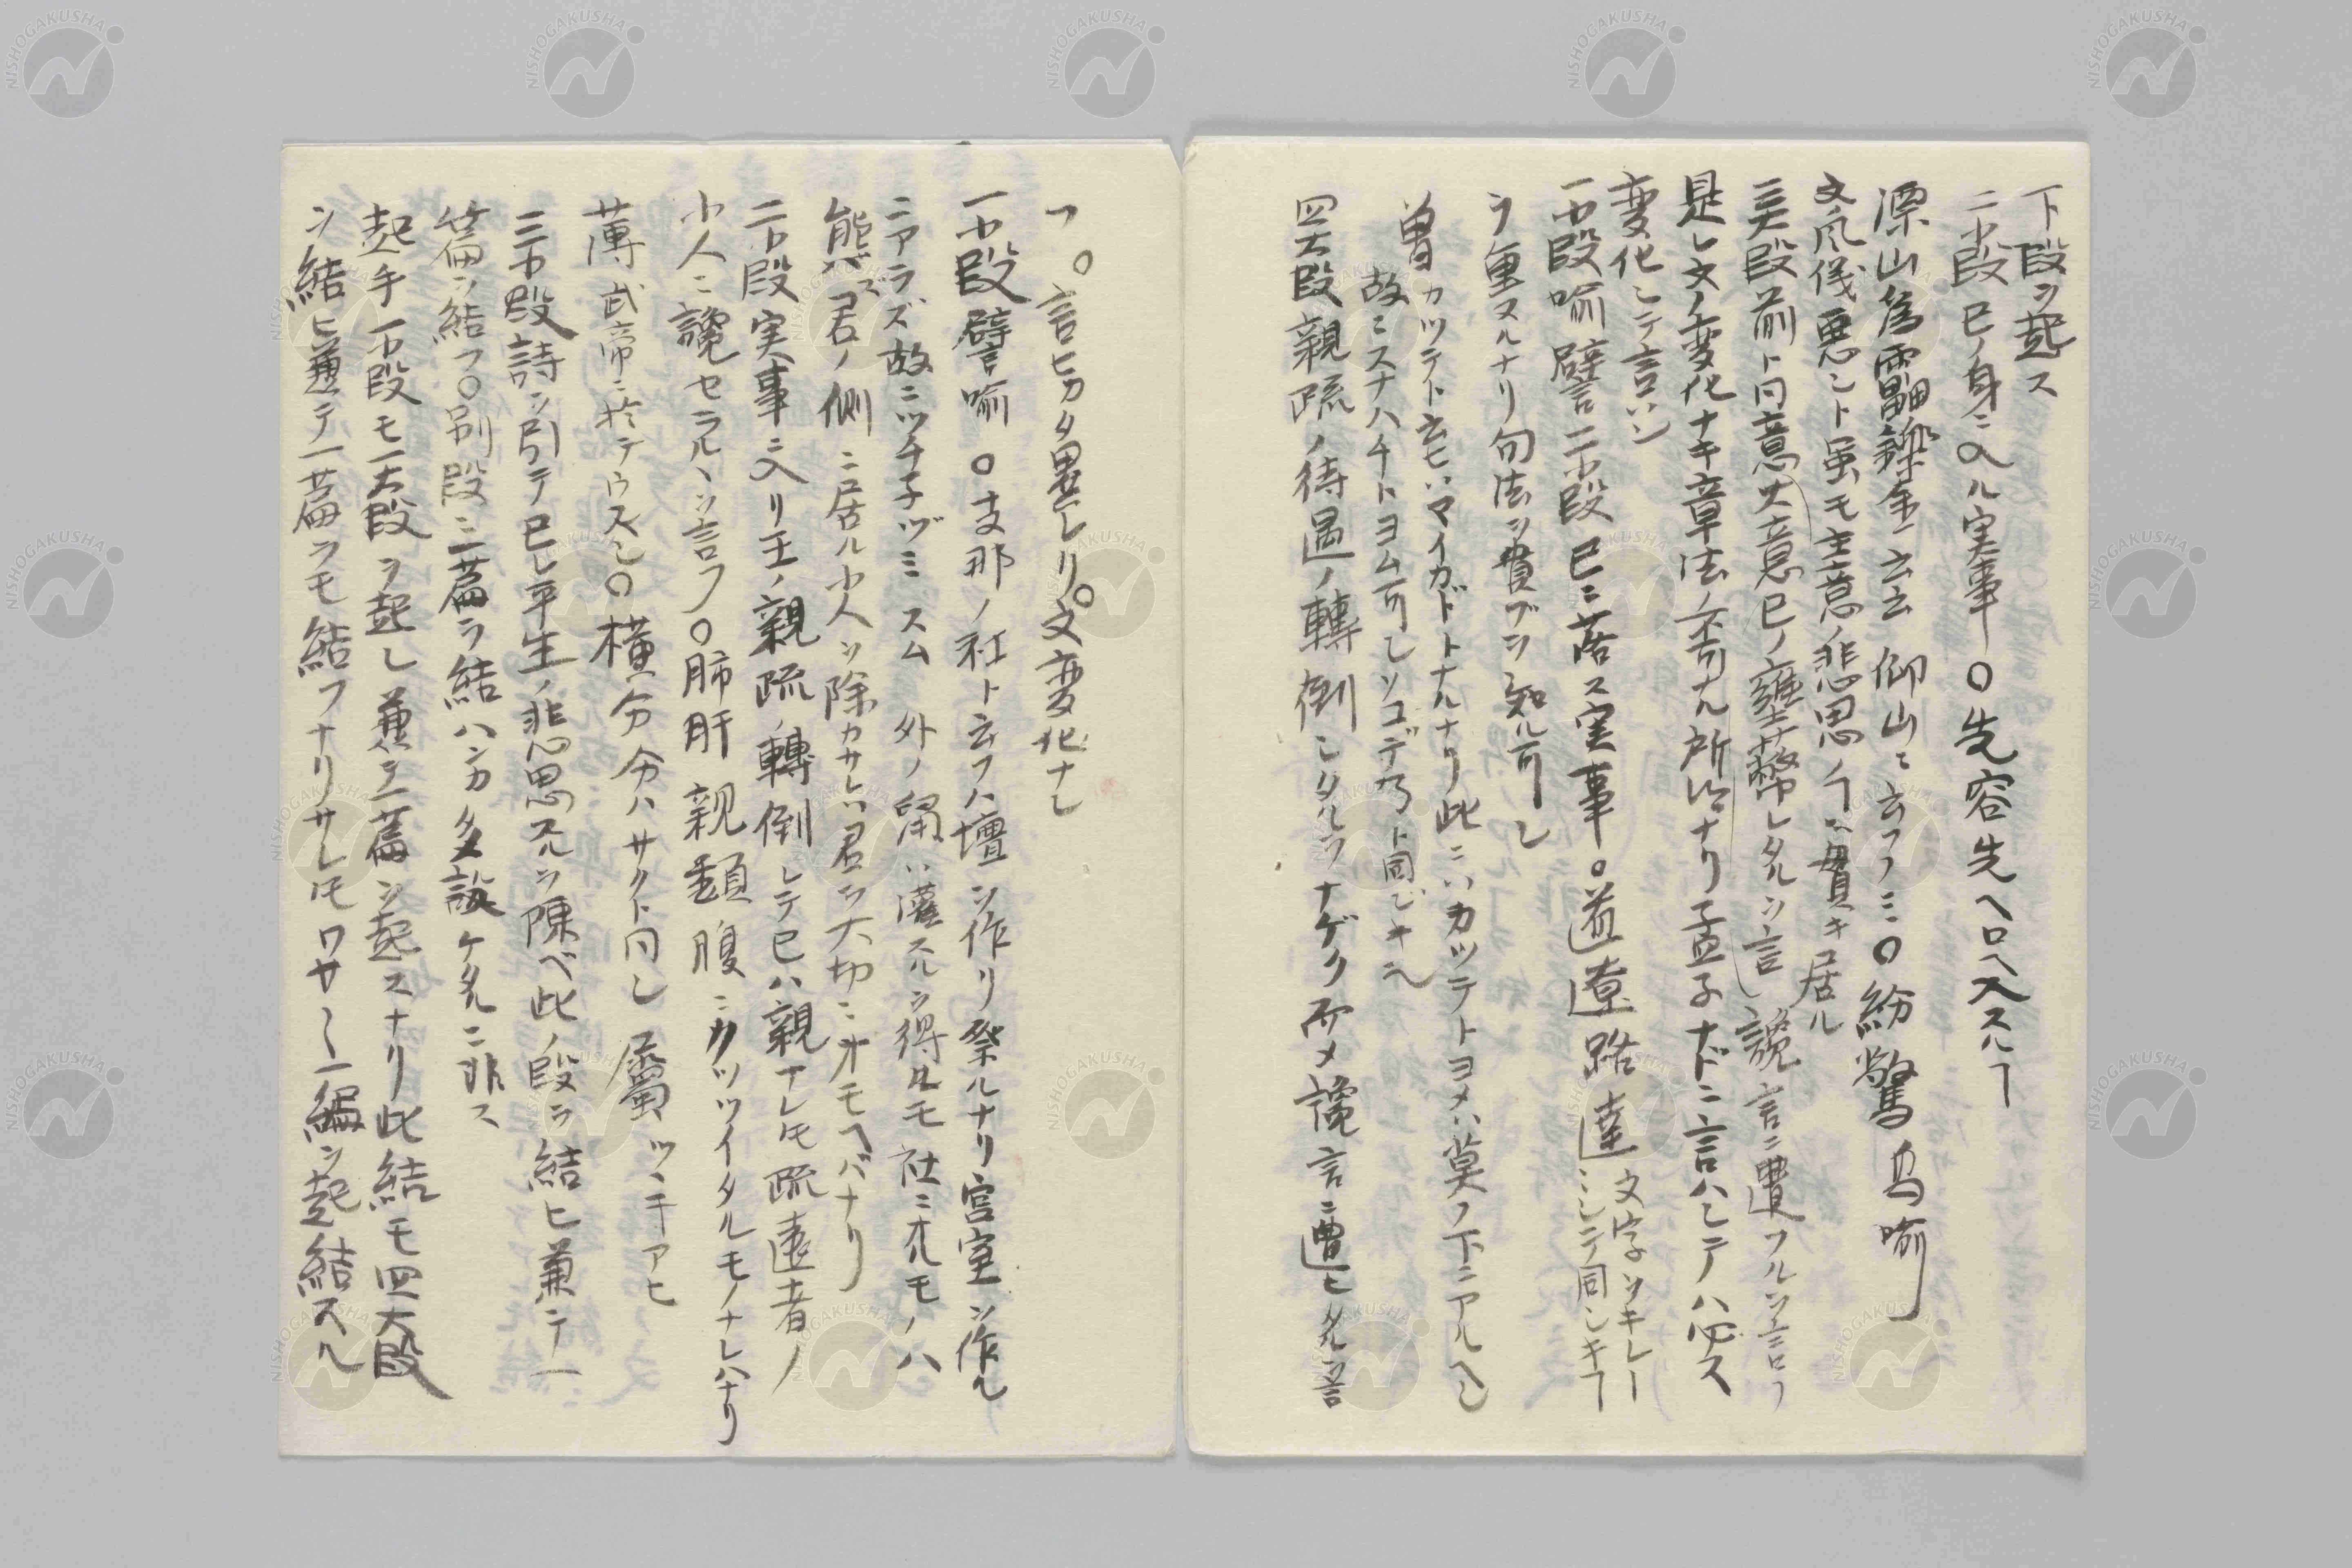 下段ヲ起ス
二小段 已ノ身ニ入ル実事 〇先容先ヘロヘ入スルヿ
漂山為靁鑠金云云 仰山ニ云フノミ〇紛驚烏喻
文風儀悪シト虽モ主意ノ悲思ノヿハ貫キ居ル
三大段前ト同意大意已ノ壅蔽レタルヲ言 讒言ニ遭フルヲ言フ
是レ文ノ変化ナキ章法ノ不可ナル所以ナリ孟子ナドニ言ハシテハ必ス
変化シテ言ハン
一小段喻譬二小段已ニ落ス実事。道遼路遠 文字ヲキレーニシテ同シキヿ
ヲ重スルナリ句法ヲ貴ブヲ知ル可シ
曽カツテト云ヒハマイカドトナルナリ此ニハカツテトヨメハ莫ノ下ニアルヘシ
故ニスナハチトヨム可シソコデ乃ト同ジキ也
四大段親疏ノ待遇ノ轉倒シタルヲナゲク而メ讒言ニ遭ヒタルヲ言
フ。言ヒカタ異レリ。文変化ナシ
一小段譬喻 〇支那ノ社ト云フハ壇ヲ作リ祭ルナリ宮室ヲ作ル
ニアラズ故ニツチ子ヅミスム 外ノ鼠ハ灌スルヲ得ルモ社ニオルモノハ
熊ハズ君ノ側ニ居ル小人ヲ除カサレハ君ヲ大切ニオモヘバナリ
二小段実事ニ入リ王ノ親疏ノ轉倒レテ已ハ親ナレ𪜈疏遠者ノ
小人ニ讒セラルヽヲ言フ〇肺肝親類腹ニカツツイタルモノナレハナリ
薄 武帝ニ於テウスシ〇橫分分ハサクト同シ 屬ツヽキアヒ
三小段詩ヲ引テ已レ平生ノ悲思スルヲ陳ベ此ノ段ヲ結ヒ兼テ一
篇ヲ結フ〇別段ニ一篇ヲ結ハンカ タメ設ケタルニ非ス
起手一小段モ一大段ヲ起シ兼テ一篇ヲ起スナリ此結モ四大段
ヲ結ヒ兼テ一篇ヲモ結フナリサレ𪜈ワサ〱一編ヲ起結スル